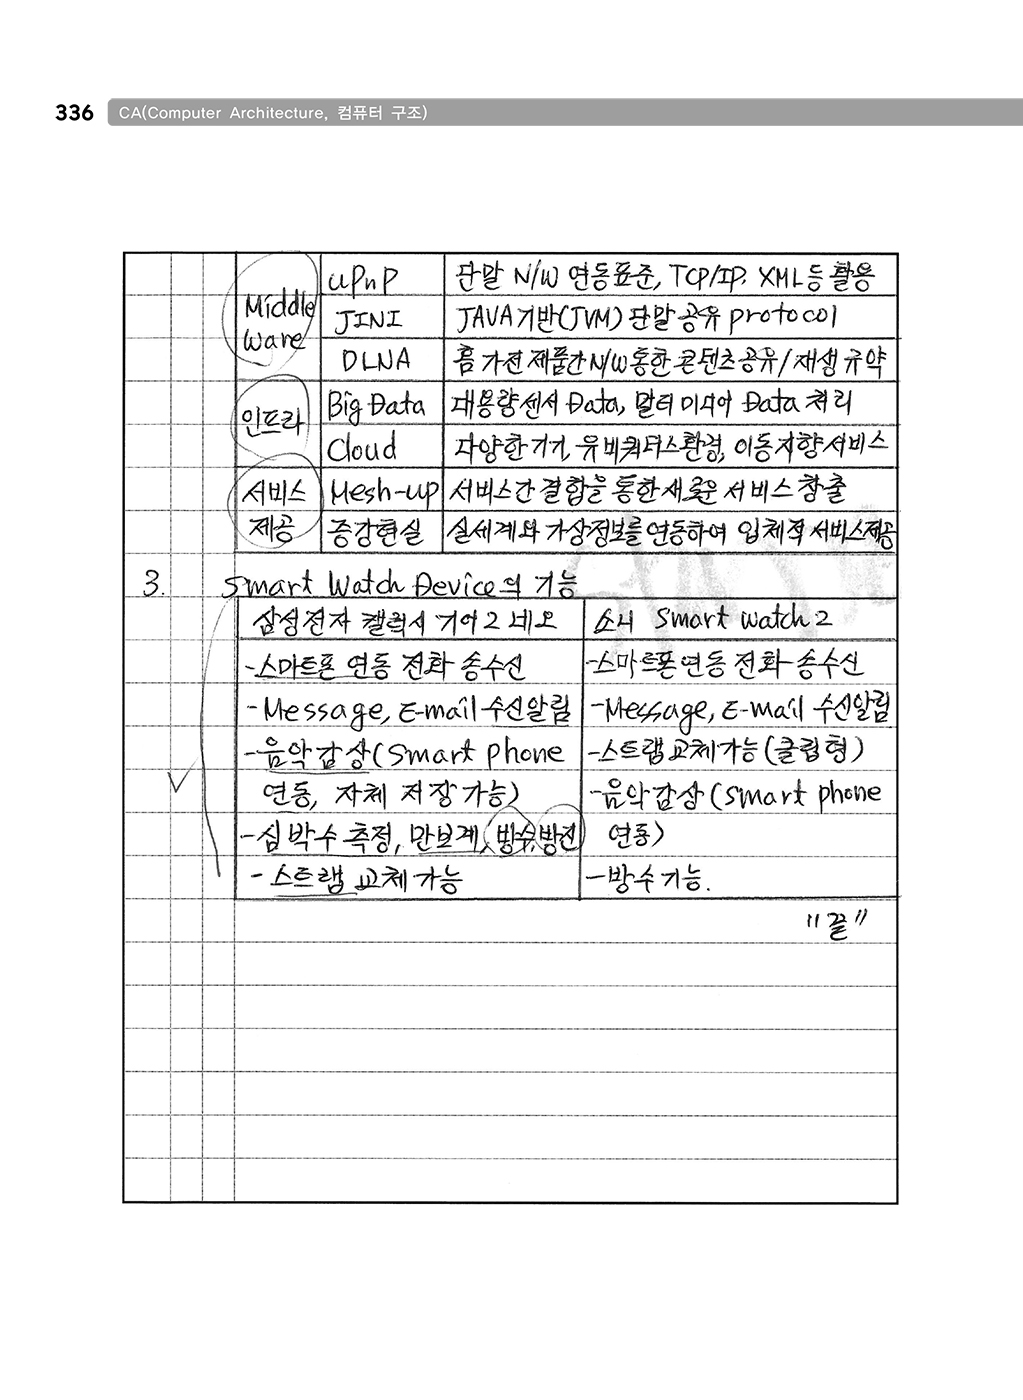 336 CA(Computer Architecture, 컴퓨터 구조)
UPnP 단말 N/W 연동표준, TCP/IP, XML등 활용
Middle
Ware
JINI JAVA기반(JVM) 단말공유 protocol
DLNA 홈 가전 제품간 N/W통한 콘텐츠공유/재생 규약
인프라
Big Data 대용량센서 Data, 멀티미디어 Data 처리
Cloud 다양한기기, 유비쿼터스환경, 이동지향서비스
서비스
제공
Mesh-up 서비스간 결합을 통한 새로운 서비스 창출
증강현실 실세계와 가상정보를 연동하여 입체적 서비스제공
3. Smart Watch Device의 기능
삼성전자 갤럭시 기어2 네오 소니 Smart Watch 2
-스마트폰 연동 전화 송수신 -스마트폰연동 전화 송수신
-Message, E-mail 수신알림 -Message, E-mail 수신알림
-음악감상(Smart phone -스트랩교체가능(클립형)
연동, 자체 저장 가능) -음악감상(Smart phone
-심박수측정, 만보계, 방수,방진 연동)
-스트랩 교체 가능 -방수기능.
"끝"